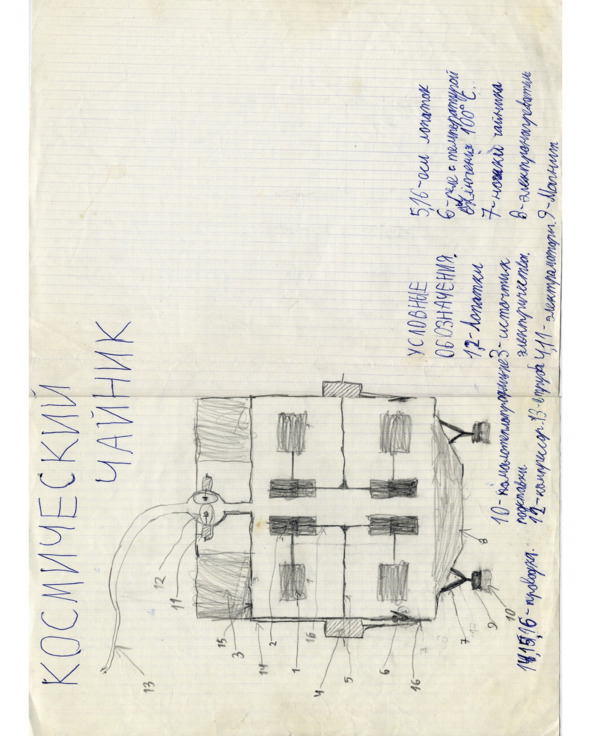 КОСМИЧЕСКИЙ
ЧАЙНИК
13
12
11
15
3
14
2
16
1
4
5
6
16
7
8
9
10
УСЛОВНЫЕ
ОБОЗНАЧЕНИЯ.
1,2-лопатки
3-источник
электричества.
4,11-электромоторы.
5,16-оси лопаток
6-реле с температурой
включения 100°C.
7-ножки чайника
8-электронагреватель
9-Магнит
10-
подставки
12-компрессор.
13-труба
14,15,16-провода.